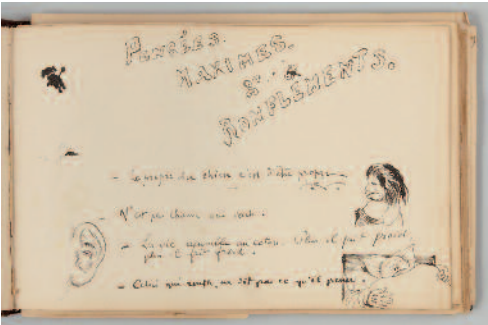 PENSÉES.
MAXIMES.
& &
RONFLEMENTS.
- Le propre du chien c'est d'être propre.
- N'est pas chauve qui veut.
- La vie ressemble au coton. Plus il
plus il fait
- Celui qui ronfle, ne dit pas ce qu'il pense.